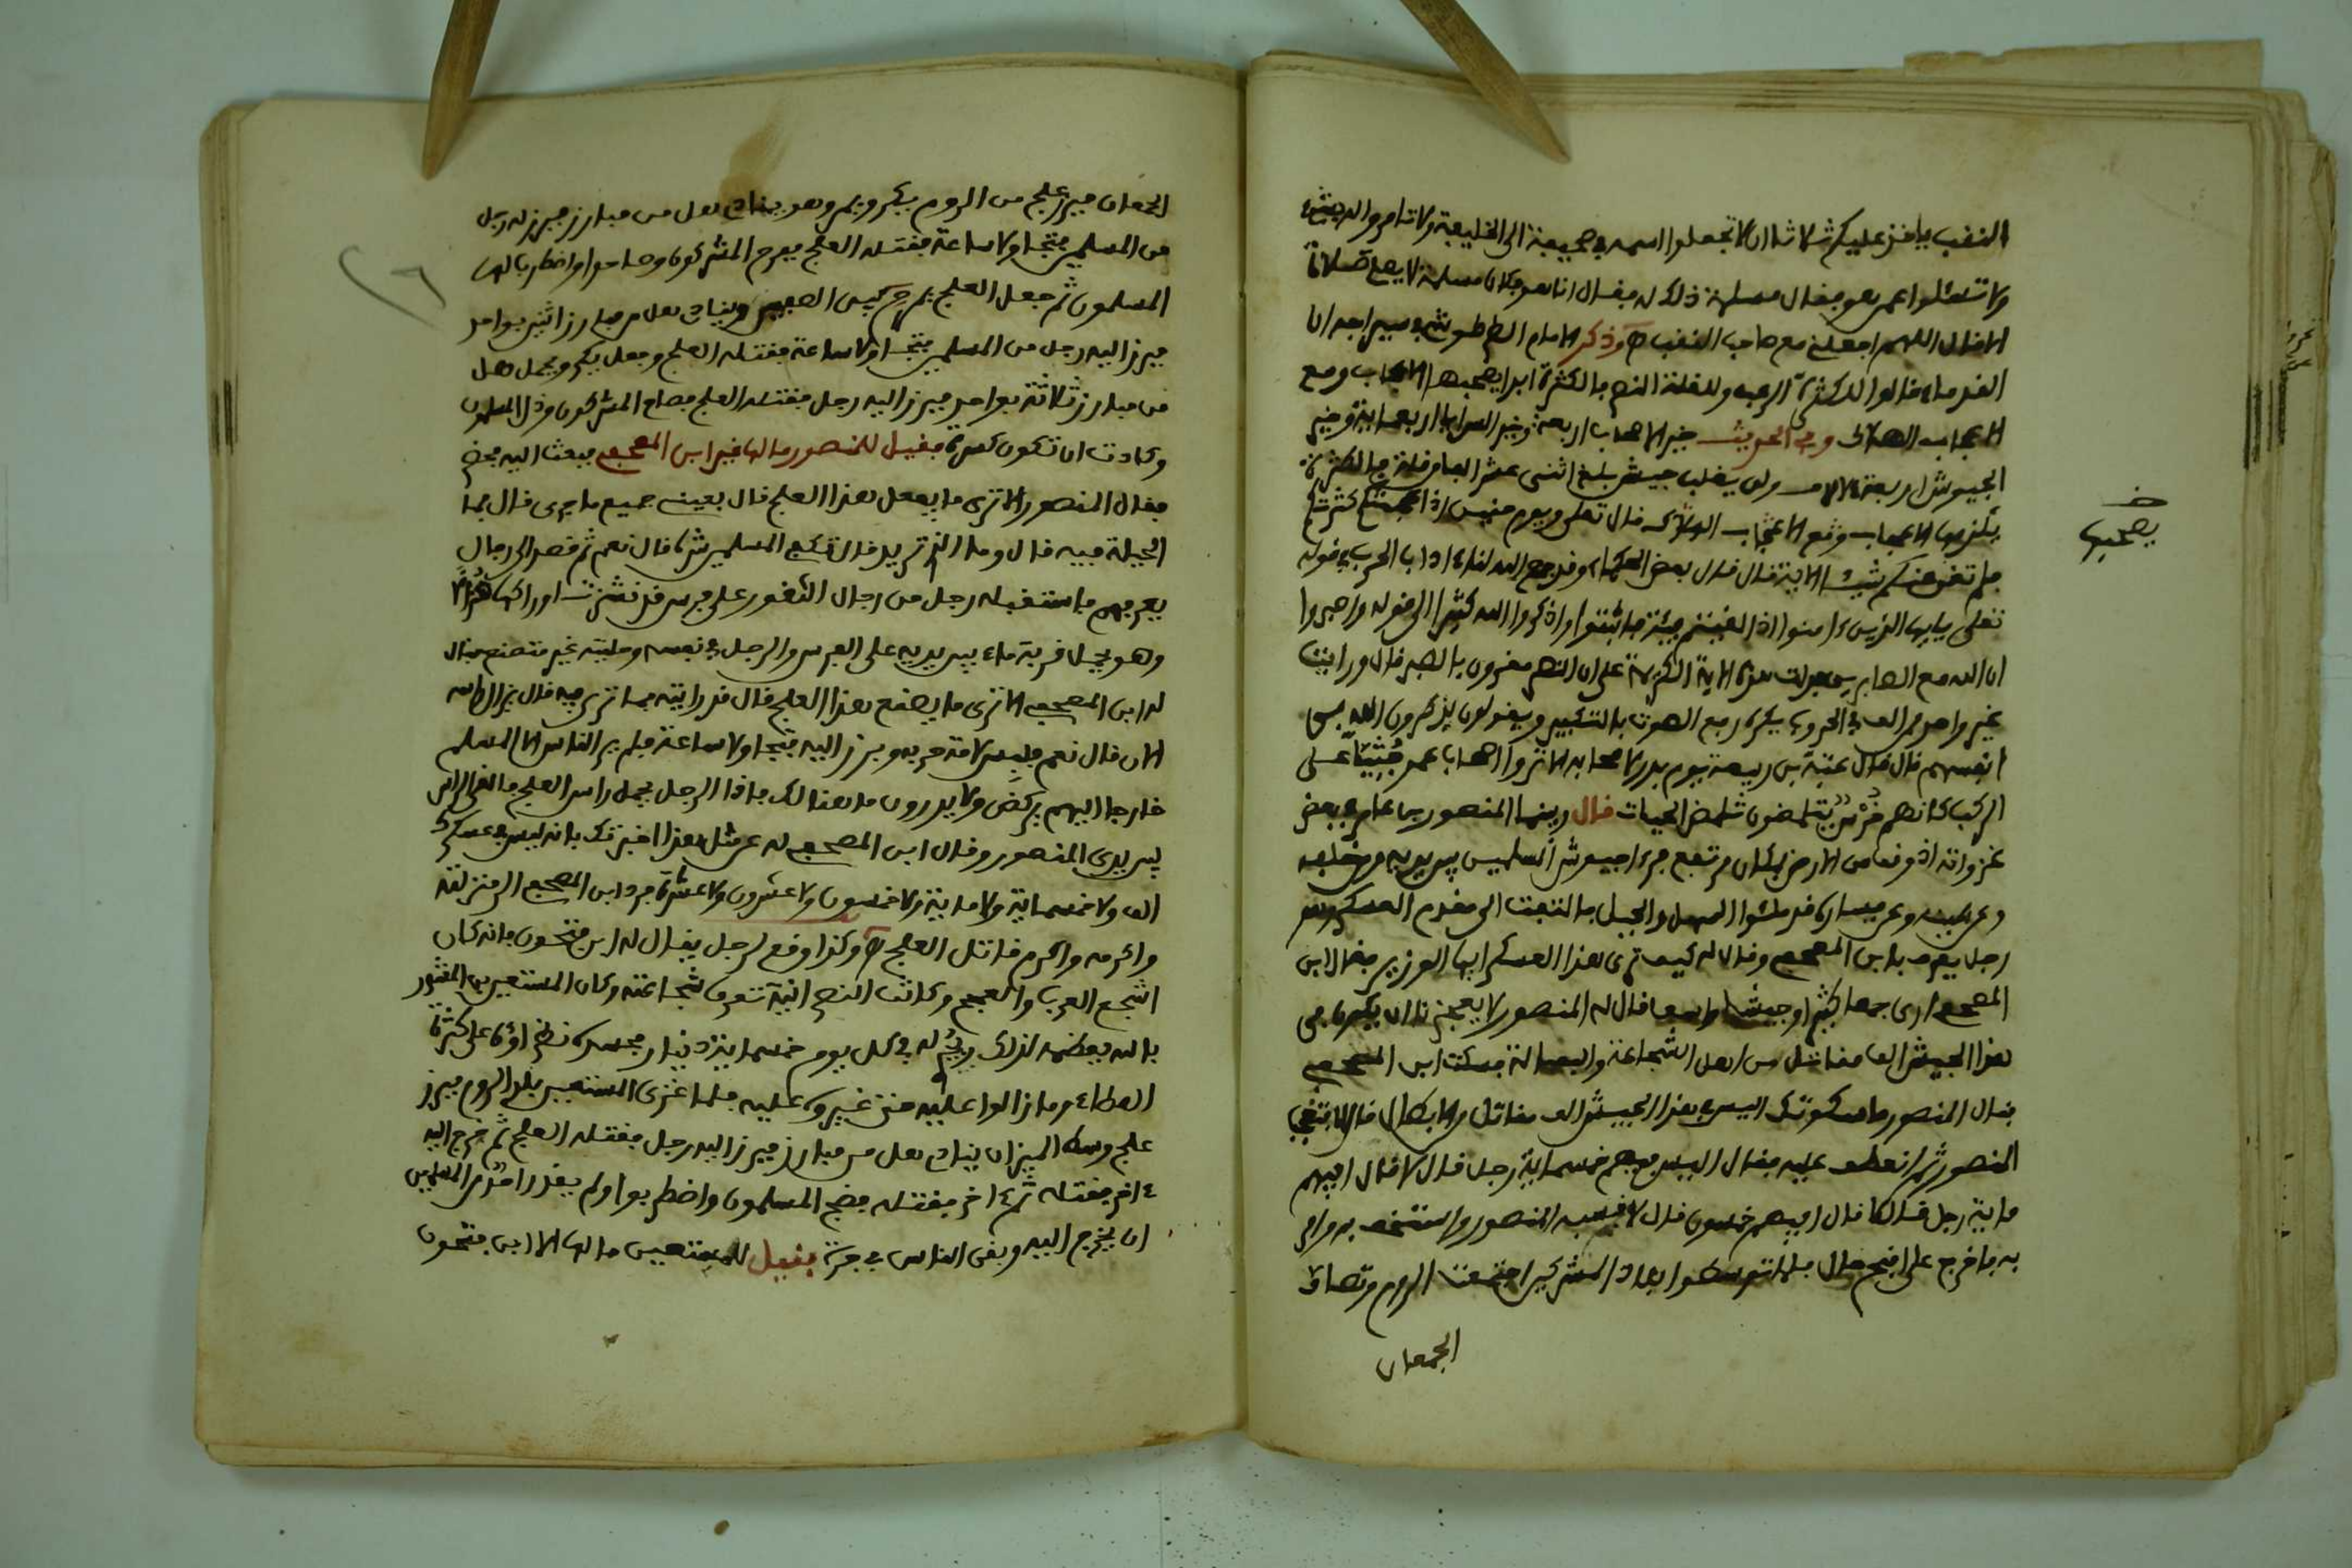 النقب ياخذ عليكم ثلاثا ان لا تجعلوا اسمه في صحيفة الى الخليفة ولا تامروا له بشيء
ولا تسئلوا ممن هو فقال مسلمة ذلك له فقال انا هو فكان مسلمة لا يصلي صلاة
الا قال اللهم اجعلني مع صاحب النقب وذكر الامام الطرطوشي في سراجه ان
القدماء قالوا الكثرة الرعب وللقلة النصر فالكثرة ابدا يصحبها الاعجاب ومع
الاعجاب الهلاك وفي الحديث خير الاصحاب اربعة وخير السرايا اربعماية وخير
الجيوش اربعة الاف ولن يغلب جيش بلغ اثنى عشر الفا من قلة فالكثرة
يكون معها الاعجاب ومع الاعجاب الهلاك قال تعلى ويوم حنين اذ اعجبتكم كثرتكم
فلم تغن عنكم شيئا الاية قال قال بعض العلماء وقد جمع الله لنا اداب الحرب في قوله
تعلى يايها الذين ءامنوا اذا لقيتم فئة فاثبتوا واذكروا الله كثيرا الى قوله واصبروا
ان الله مع الصابرين فدلت هذه الاية الكريمة على ان النصر مقرون بالصبر قال ورايت
غير واحد ممن الف في الحروب يكره رفع الصوت بالتكبير ويقولون يذكرون الله في
انفسهم قال قال عتبة بن ربيعة يوم بدر لاصحابه الا تروا اصحاب محمد جثيا على
الركب كانهم خرس يتلمضون تلمض الحيات قال وبينما المنصور بن عامر في بعض
غزواته اذ وقف من الارض بمكان مرتفع فرءا جيوش المسلمين بين يديه ومن خلفه
وعن يمينه وعن يساره قد ملئوا السهل والجبل فالتفت الى مقدم العسكر وهو
رجل يعرف بابن المصحفي وقال له كيف ترى هذا العسكر ايها الوزير فقال ابن
المصحفي ارى جمعا كثيرا وجيشا واسعا قال له المنصور لا يعجزنا ان يكون في
هذا الجيش الف مقاتل من اهل الشجاعة والبسالة فسكت ابن المصحفي
فقال المنصور ما سكوتك اليس في هذا الجيش الف مقاتل من الابطال قال لا فتعجب
المنصور ثم انعطف عليه فقال اليس فيهم خمسماية رجل قال لا قال افيهم
ماية رجل قال لا قال افيهم خمسون قال لا فسبه المنصور واستخف به وامر
به فاخرج على اقبح حال فلما توسطوا بلاد المشركين اجتمعت الروم وتصاف
الجمعان
خ
يصحبها
الجمعان فبرز علج من الروم يكر ويمر وهو ينادي هل من مبارز فبرز له رجل
من المسلمين فتجاولا ساعة فقتله العلج ففرح المشركون وصاحوا واضطرب لها
المسلمون ثم جعل العلج يمرح بين الصفين وينادي هل من مبارز اثنين بواحد
فبرز اليه رجل من المسلمين فتجاولا ساعة فقتله العلج وجعل يكر ويحمل هل
من مبارز ثلاثة بواحد فبرز اليه رجل فقتله العلج فصاح المشركون وذل المسلمون
وكادت ان تكون كسرة فقيل للمنصور ما لها غير ابن المصحفي فبعث اليه فحضر
فقال المنصور الا ترى ما يفعل هذا العلج قال بعيني جميع ما جرى قال فما
الحيلة فيه قال وما الذي تريد قال تكفي المسلمين شره قال نعم ثم قصد الى رجال
يعرفهم فاستقبله رجل من رجال الثغور على فرس قد نشزت اوراكها هزلا
وهو يحمل قربة ماء بين يديه على الفرس والرجل في نفسه وحليته غير متصنع فقال
له ابن المصحفي الا ترى ما يصنع هذا العلج قال قد رايته فما تريد فيه قال
الان قال نعم فلبس لامة حربه وبرز اليه فتجاولا ساعة فلم ير الناس الا المسلم
خارجا اليهم يركض ولا يدرون ما هنالك فاذا الرجل يحمل راس العلج فالقى الراس
بين يدي المنصور وقال ابن المصحفي له عن مثل هذا اخبرتك بانه ليس في عسكرك
الف ولا خمسماية ولا ماية ولا خمسون ولا عشرون ولا عشرة فرد ابن المصحفي الى منزلته
واكرمه واكرم قاتل العلج وكذا وقع لرجل يقال له ابن فتحون فانه كان
اشجع العرب والعجم وكانت النصرانية تعرف شجاعته وكان المستعين بن المقتدر
بالله يعظمه لذلك ويجري له في كل يوم خمسماية دينار فحسده نظراؤه على كثرة
العطاء وما زالوا عليه حتى غيروه عليه فلما غزى المستعين بلاد الروم فبرز
علج وسط الميدان ينادي هل من مبارز فبرز اليه رجل فقتله العلج ثم خرج اليه
ءاخر فقتله ثم ءاخر فقتله فضج المسلمون واضطربوا ولم يقدر احد من المسلمين
ان يخرج اليه وبقى الناس في حيرة فقيل للمستعين ما لها الا ابن فتحون